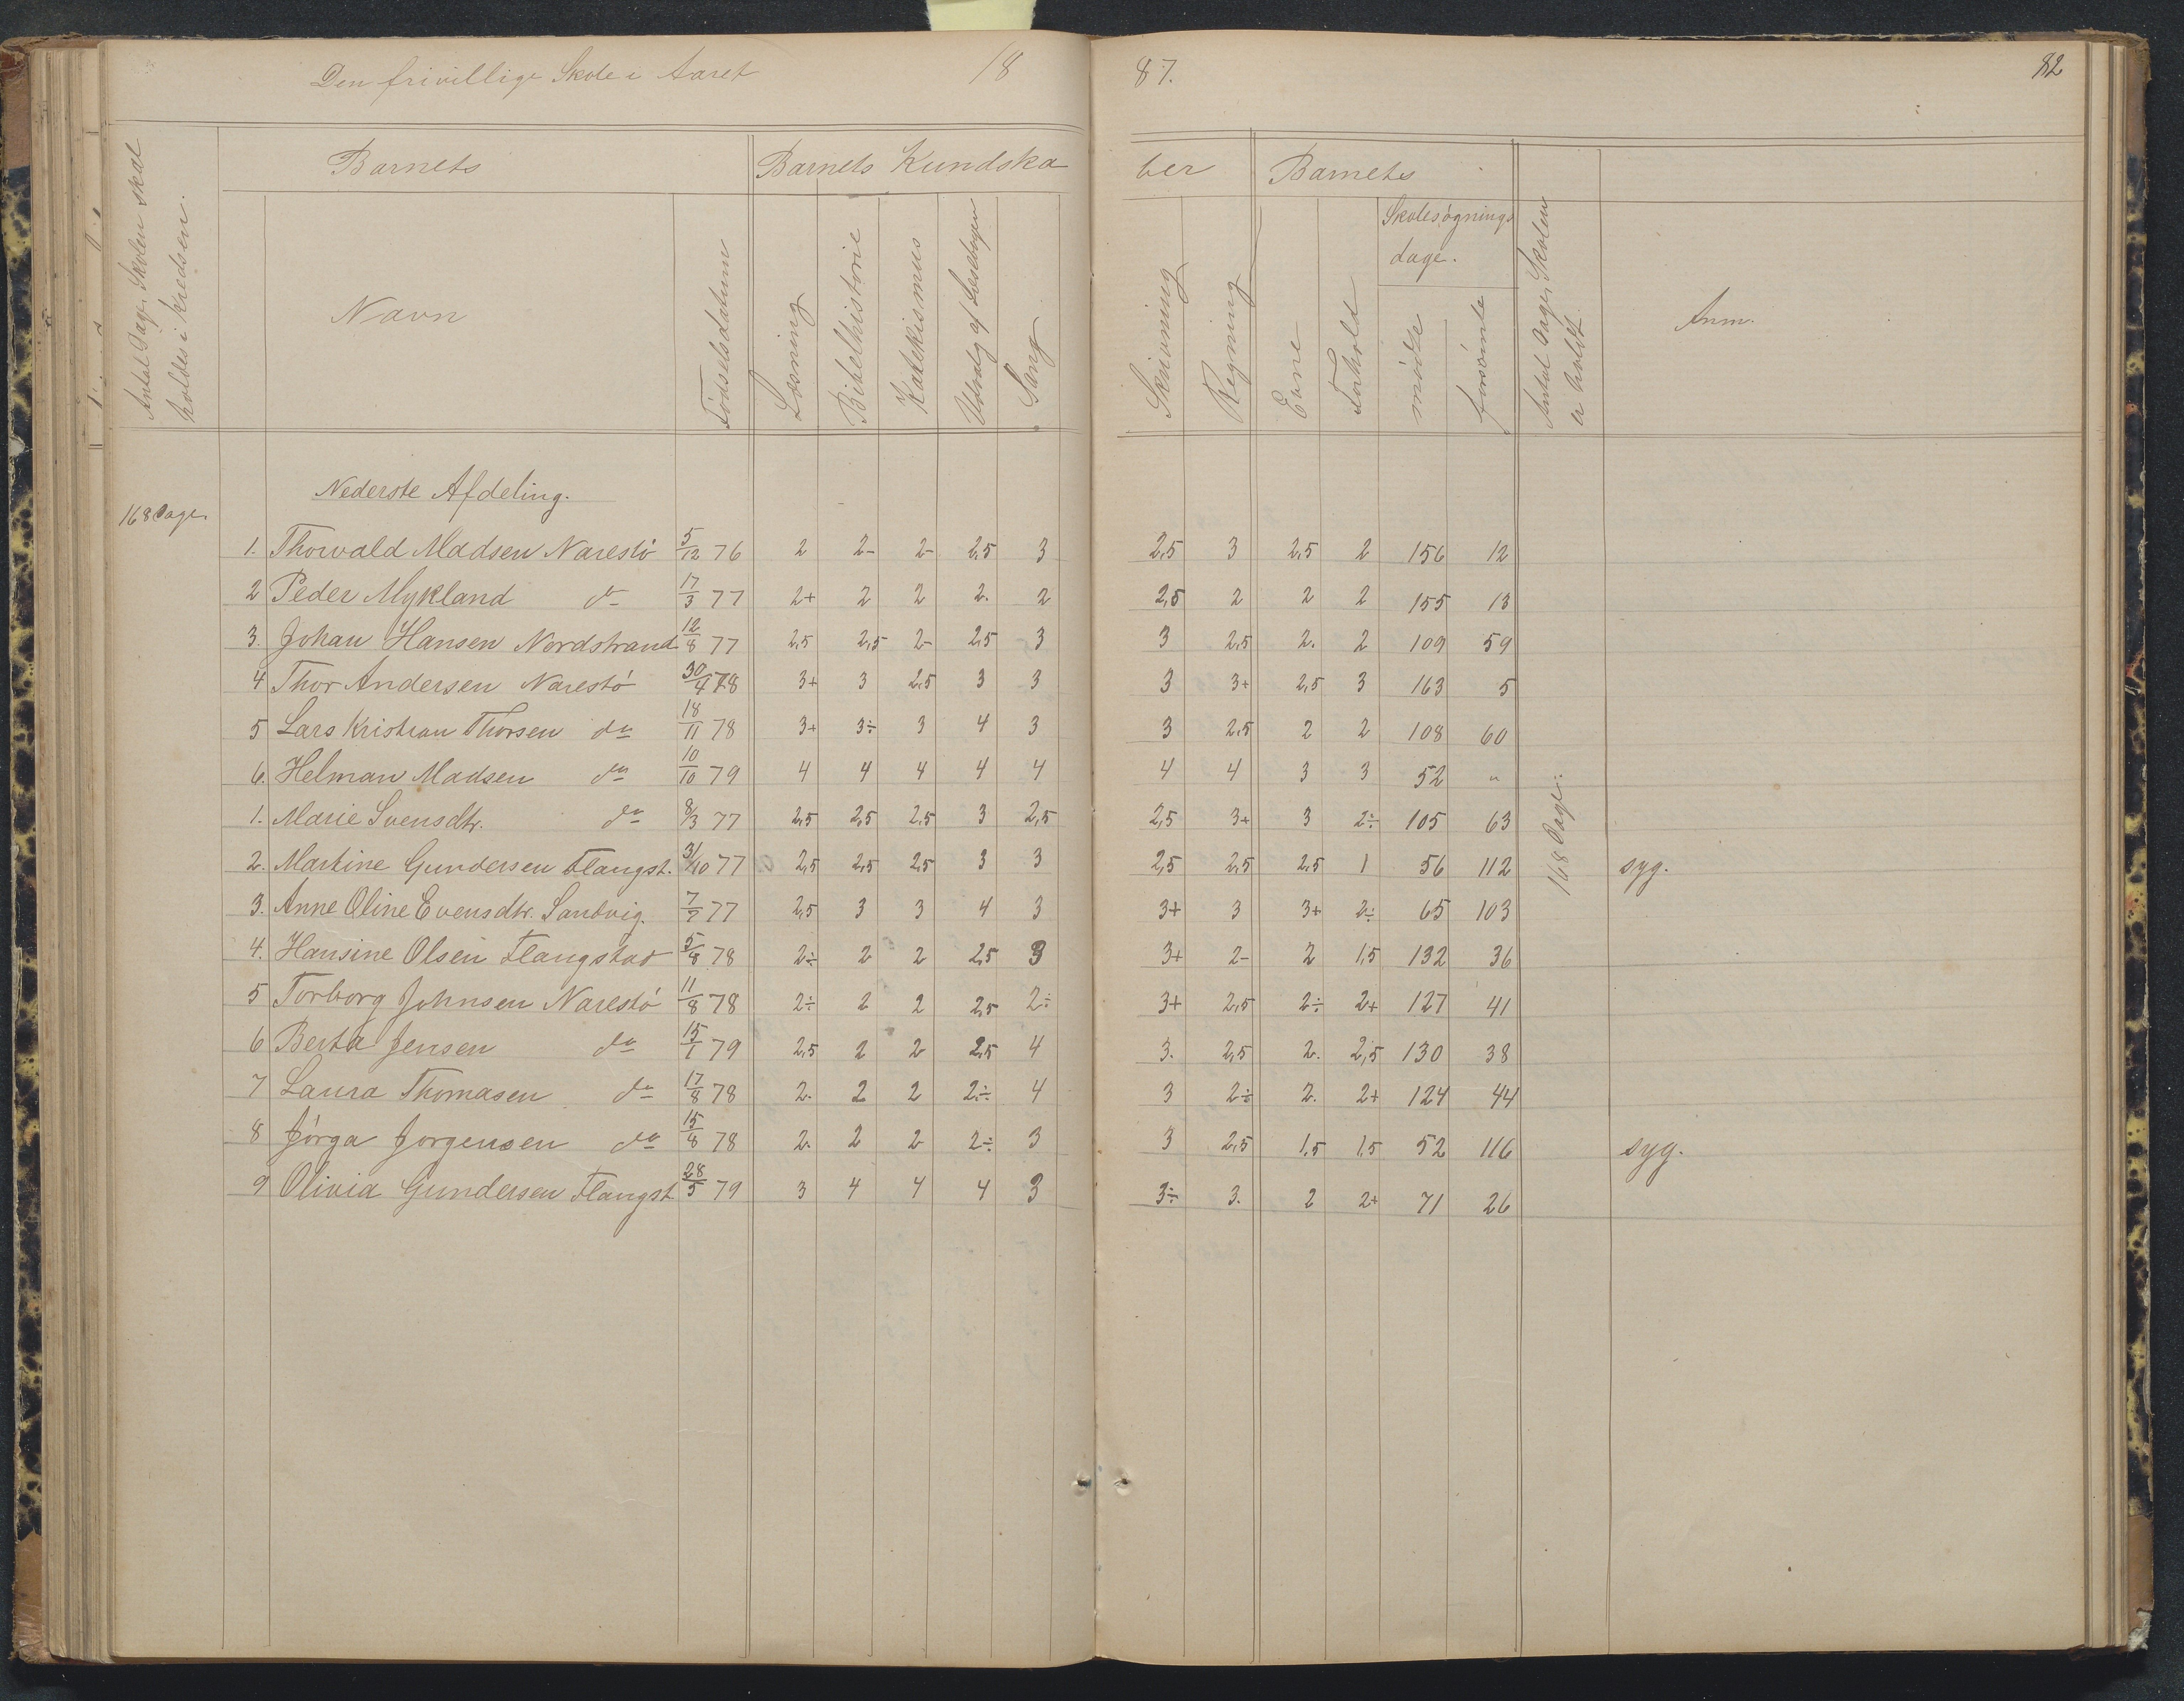 Den frivillige Skole i Aaret 18 87. 82
Antal Dage, Skolen skal holdes i Kredsen.
Barnets
Barnets Kundska ber
Barnets
Navn
Fødselsdatum
Læsning
Bibelhistorie
Katekismus
Udvalg af Læsebogen
Sang
Skrivning
Regning
Evne
Forhold
Skolesøgnings
dage.
mødte
forsømte
Antal Dage, Skolen er holdt.
Anm.
Nederste Afdeling.
168 Dage.
1. Thorvald Madsen Narestø 5/12 76 2 2- 2- 2,5 3 2,5 3 2,5 2 156 12
2 Peder Mykland do 17/3 77 2+ 2 2 2. 2 2,5 2 2 2 155 13
3. Johan Hansen Nordstrand 12/8 77 2,5 2,5 2- 2,5 3 3 2,5 2. 2 109 59
4 Thor Andersen Narestø 30/4 78 3+ 3 2,5 3 3 3 3+ 2,5 3 163 5
5 Lars Kristian Thorsen do 18/11 78 3+ 3÷ 3 4 3 3 2,5 2 2 108 60
6. Helman Madsen do 10/10 79 4 4 4 4 4 4 4 3 3 52 "
1. Marie Svensdtr. do 8/3 77 2,5 2,5 2,5 3 2,5 2,5 3+ 3 2÷ 105 63
168 Dage.
2. Martine Gundersen Flangst. 31/10 77 2,5 2,5 2,5 3 3 2,5 2,5 2,5 1 56 112 syg.
3. Anne Oline Evensdtr. Sandvig. 7/7 77 2,5 3 3 4 3 3+ 3 3+ 2÷ 65 103
4. Hansine Olsen Flangstad 5/8 78 2÷ 2 2 2,5 3 3+ 2- 2 1,5 132 36
5 Torborg Johnsen Narestø 11/8 78 2÷ 2 2 2,5 2÷ 3+ 2,5 2÷ 2+ 127 41
6 Berta Jensen do 15/1 79 2,5 2 2 2,5 4 3. 2,5 2. 2,5 130 38
7 Laura Thomasen do 17/8 78 2. 2 2 2÷ 4 3 2÷ 2. 2+ 124 44
8 Jørga Jørgensen do 15/8 78 2. 2 2 2÷ 3 3 2,5 1,5 1,5 52 116 syg.
9 Olivia Gundersen Flangst 28/5 79 3 4 4 4 3 3÷ 3. 2 2+ 71 26